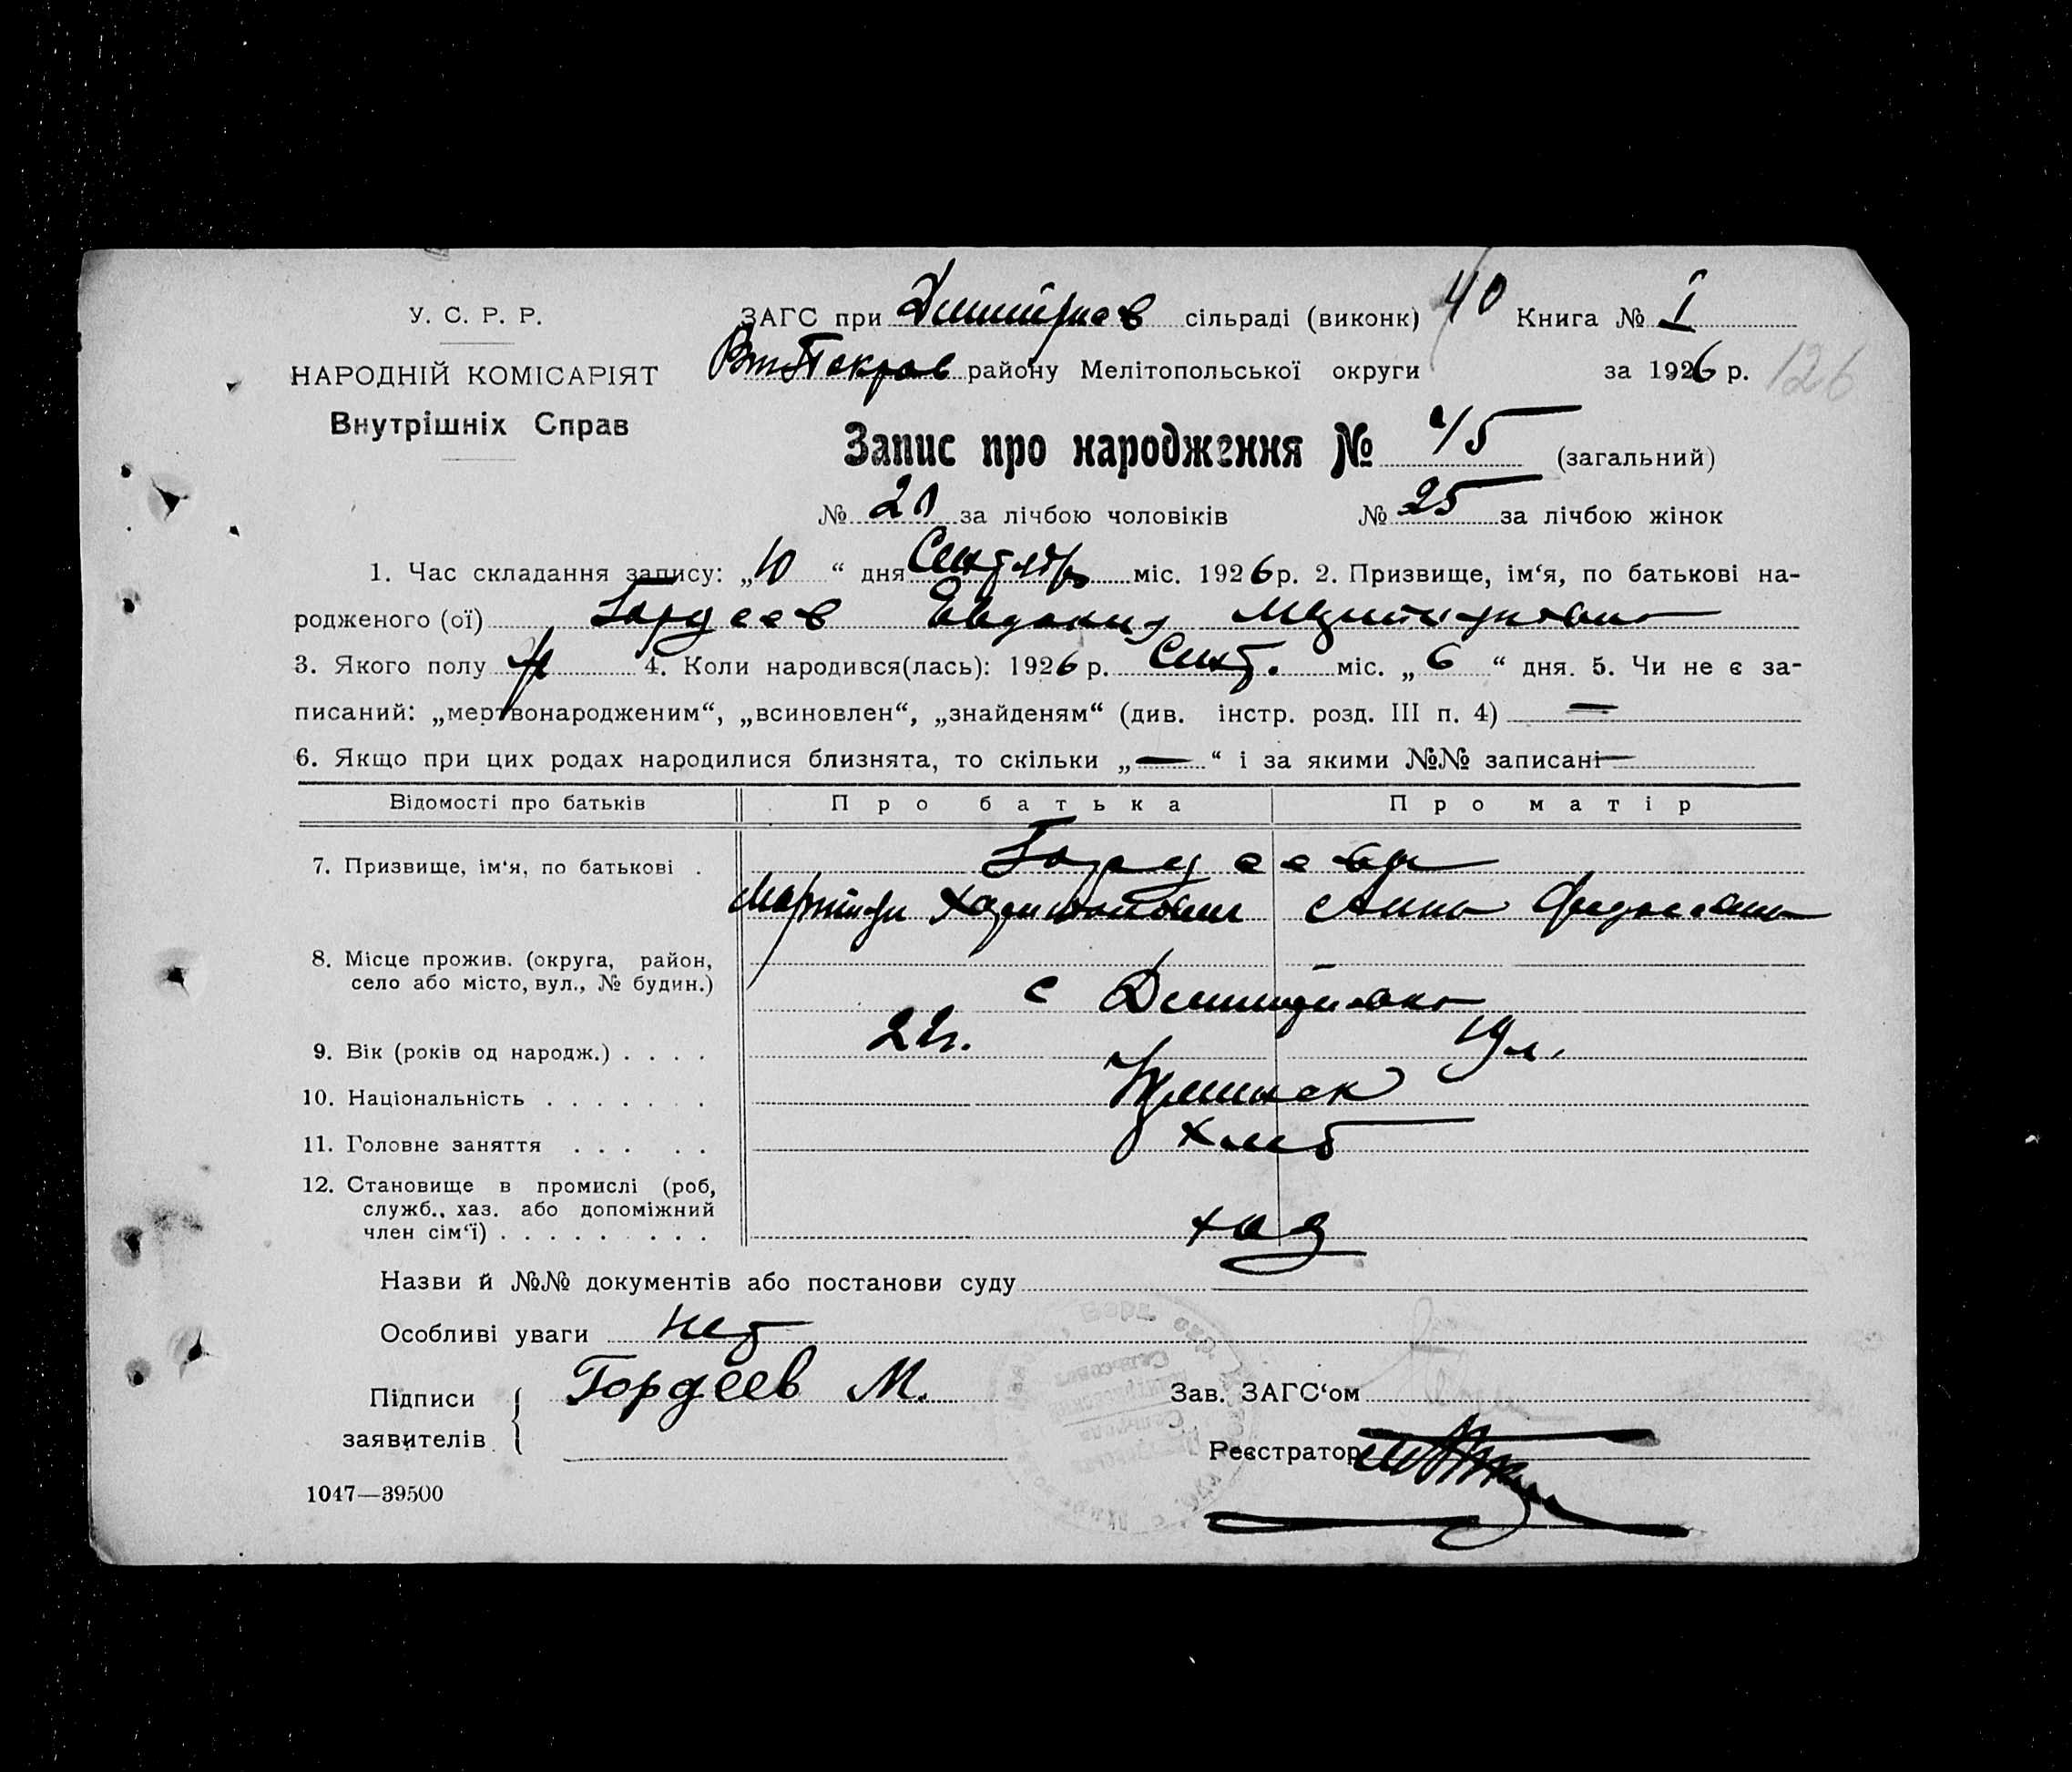 У. С. Р. Р.
НАРОДНІЙ КОМІСАРІЯТ
Внутрішніх Справ
ЗАГС при Дмитриев сільраді (виконк) 40 Книга № I
Вт Покров району Мелітопольської округи за 1926 р. 126
Запис про народження № 45 (загальний)
№ 20 за лічбою чоловіків № 25 за лічбою жінок
1. Час складання запису: „10“ дня Сентября міс. 1926 р. 2. Призвище, ім‘я, по батькові на-
родженого (ої) Гордеев Евдокия
3. Якого полу ж 4. Коли народився(лась): 1926 р. Сент. міс. „6“ дня. 5. Чи не є за-
писаний: „мертвонародженим“, „всиновлен“, „знайденям“ (див. інстр. розд. III п. 4) —
6. Якщо при цих родах народилися близнята, то скільки „—“ і за якими №№ записані —
Відомості про батьків Про батька Про матір
7. Призвище, ім‘я, по батькові . Гордеевы
Харитонович Анна
8. Місце прожив. (округа, район,
село або місто, вул., № будин.) с Дмитровка
9. Вік (років од народж.) . . . . 22г. 19 л.
10. Національність . . . . . . .
11. Головне заняття . . . . . хлеб
12. Становище в промислі (роб,
служб., хаз. або допоміжний
член сім‘ї) . . . . . . . . . хоз
Назви й №№ документів або постанови суду
Особливі уваги нет
Підписи
заявителів
Гордеев М.
Зав. ЗАГС‘ом
Реєстратор
1047—39500